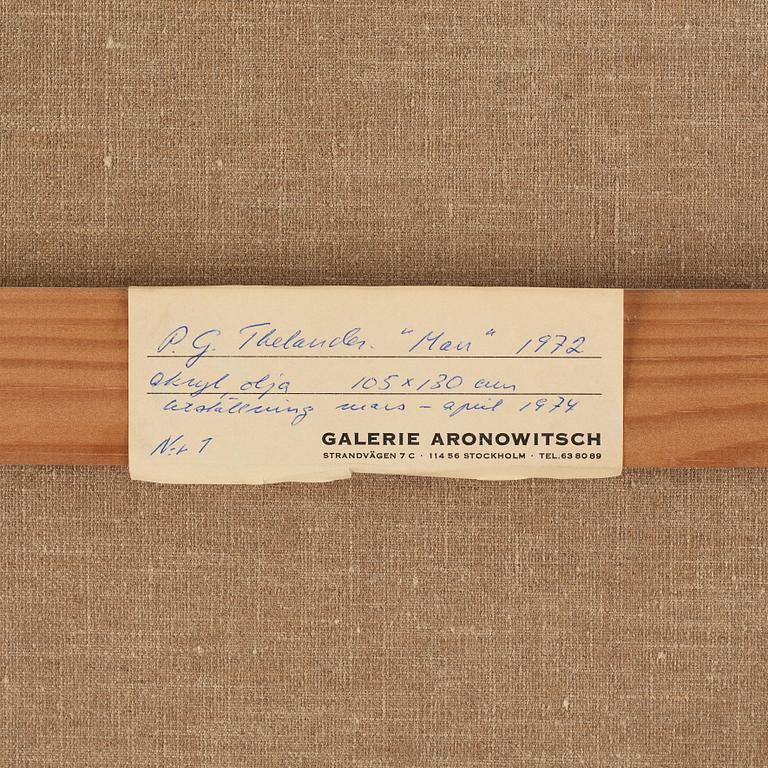 P.G. Thelander. "Man" 1972
akryl olja 105 x 130 cm
utställning mars - april 1974
N:r 1
GALERIE ARONOWITSCH
STRANDVÄGEN 7 C · 114 56 STOCKHOLM · TEL. 63 80 89